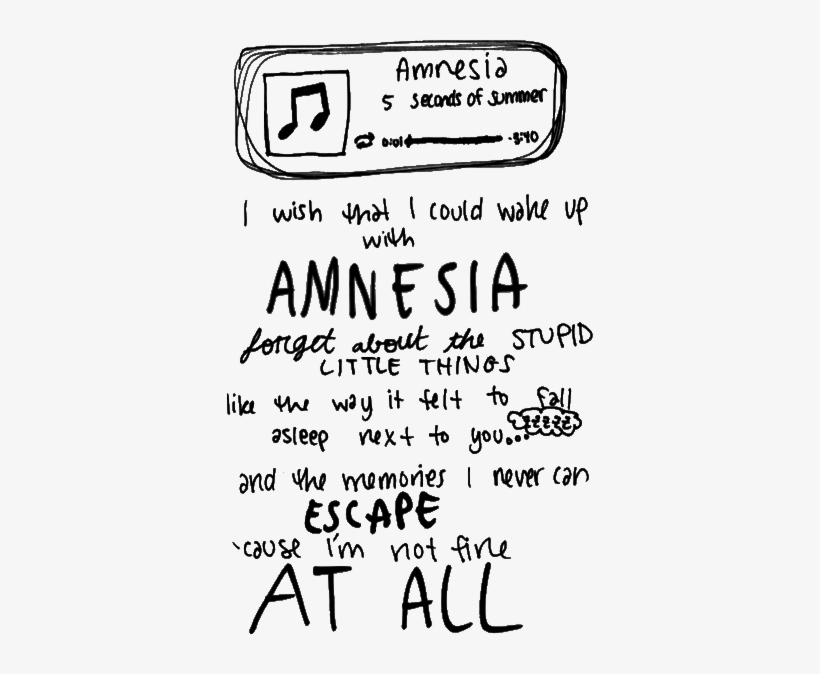 Amnesia
5 seconds of summer
0:01 -3:40
I wish that I could wake up
with
AMNESIA
forget about the STUPID
LITTLE THINGS
like the way it felt to fall
asleep next to you...
zzzzz
and the memories I never can
ESCAPE
'cause I'm not fine
AT ALL